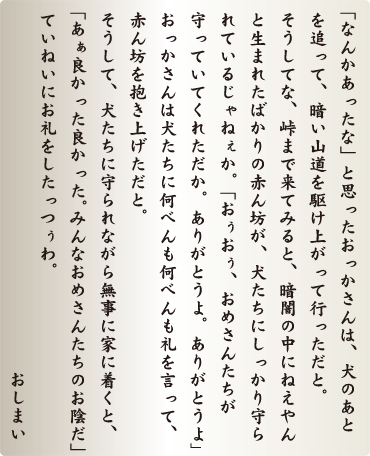 「なんかあったな」と思ったおっかさんは、犬のあと
を追って、暗い山道を駆け上がって行っただと。
そうしてな、峠まで来てみると、暗闇の中にねえやん
と生まれたばかりの赤ん坊が、犬たちにしっかり守ら
れているじゃねぇか。「おぅおぅ、おめさんたちが
守っていてくれただか。ありがとうよ。ありがとうよ」
おっかさんは犬たちに何べんも何べんも礼を言って、
赤ん坊を抱き上げただと。
そうして、犬たちに守られながら無事に家に着くと、
「あぁ良かった良かった。みんなおめさんたちのお陰だ」
ていねいにお礼をしたっつぅわ。
おしまい